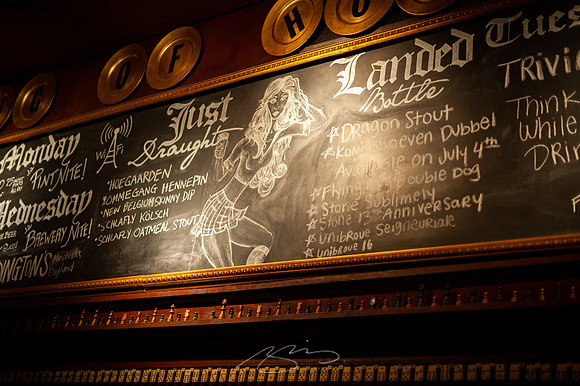 C O F H O
Monday
PINT NiTE!
Wednesday
BREWERY NiTE!
WiFi
Just
Draught
*HOEGAARDEN
*OMMEGANG HENNEPIN
*NEW BELGIUM SKINNY DIP
*SCHLAFLY KÖLSCH
*SCHLAFLY OATMEAL STOUT
Landed
Bottle
☆Dragon Stout
☆Koningshoeven Dubbel
Available on July 4th
☆Flying Double Dog
☆Stone Sublimely
☆Stone 13th Anniversary
☆Unibroue Seigneuriale
☆Unibroue 16
Tues
TRiViA
Think
While
DRin